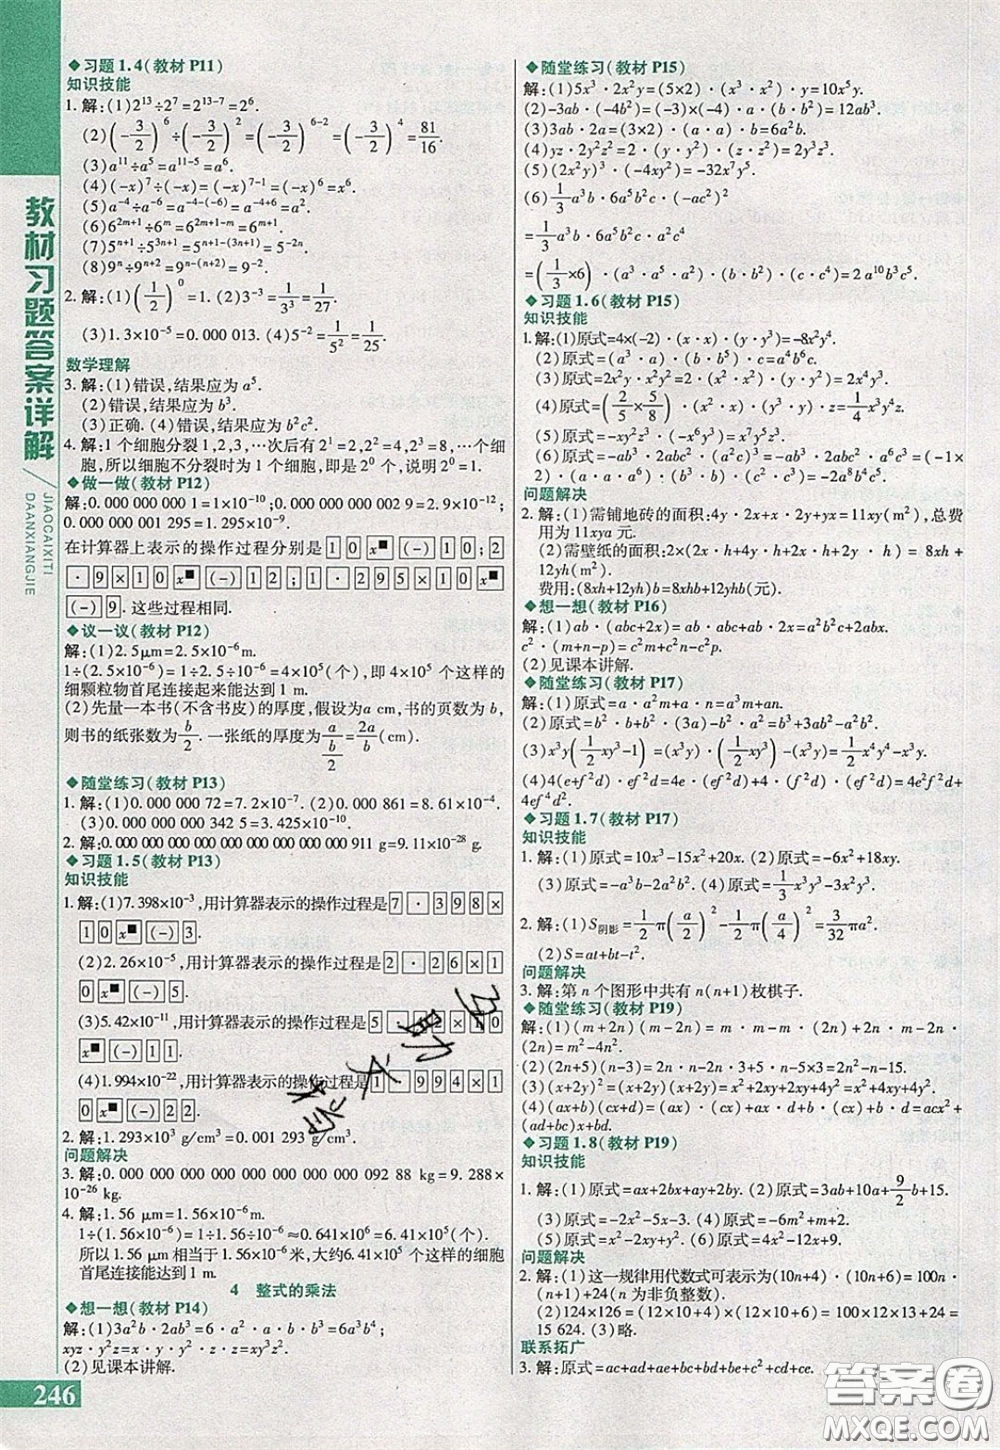 教材习题答案详解
JIAOCAIXITI
DAANXIANGJIE
◆习题1.4(教材P11)
知识技能
1.解:(1)2¹³÷2⁷=2¹³⁻⁷=2⁶.
(2)(-3/2)⁶÷(-3/2)²=(-3/2)⁶⁻²=(-3/2)⁴=81/16
(3)a¹¹÷a⁵=a¹¹⁻⁵=a⁶.
(4)(-x)⁷÷(-x)=(-x)⁷⁻¹=(-x)⁶=x⁶.
(5)a⁻⁴÷a⁻⁶=a⁻⁴⁻⁽⁻⁶⁾=a⁻⁴⁺⁶=a²
(6)6²ᵐ⁺¹÷6ᵐ=6²ᵐ⁺¹⁻ᵐ=6ᵐ⁺¹.
(7)5ⁿ⁺¹÷5³ⁿ⁺¹=5ⁿ⁺¹⁻⁽³ⁿ⁺¹⁾=5⁻²ⁿ.
(8)9ⁿ÷9ⁿ⁺²=9ⁿ⁻⁽ⁿ⁺²⁾=9⁻².
2.解:(1)(1/2)⁰=1.(2)3⁻³=1/3³=1/27.
(3)1.3×10⁻⁵=0.000 013.(4)5⁻²=1/5²=1/25
数学理解
3.解:(1)错误,结果应为a⁵.
(2)错误,结果应为b³.
(3)正确.(4)错误,结果应为b²c².
4.解:1个细胞分裂1,2,3,…次后有2¹=2,2²=4,2³=8,…个细
胞,所以细胞不分裂时为1个细胞,即是2⁰个,说明2⁰=1.
◆做一做(教材P12)
解:0.000 000 000 1=1×10⁻¹⁰;0.000 000 000 002 9=2.9×10⁻¹²;
0.000 000 001 295=1.295×10⁻⁹.
在计算器上表示的操作过程分别是 1 0 x■ (-) 1 0 ; 2
· 9 × 1 0 x■ (-) 1 2 ; 1 · 2 9 5 × 1 0 x■
(-) 9 .这些过程相同.
◆议一议(教材P12)
解:(1)2.5μm=2.5×10⁻⁶m.
1÷(2.5×10⁻⁶)=1÷2.5÷10⁻⁶=4×10⁵(个),即4×10⁵个这样的
细颗粒物首尾连接起来能达到1 m.
(2)先量一本书(不含书皮)的厚度,假设为a cm,书的页数为b,
则书的纸张数为b/2.一张纸的厚度为a/(b/2)=2a/b(cm).
◆随堂练习(教材P13)
1.解:(1)0.000 000 72=7.2×10⁻⁷.(2)0.000 861=8.61×10⁻⁴.
(3)0.000 000 000 342 5=3.425×10⁻¹⁰.
2.解:0.000 000 000 000 000 000 000 000 000 911 g=9.11×10⁻²⁸ g.
◆习题1.5(教材P13)
知识技能
1.解:(1)7.398×10⁻³,用计算器表示的操作过程是 7 · 3 9 8 ×
1 0 x■ (-) 3 .
(2)2.26×10⁻⁵,用计算器表示的操作过程是 2 · 2 6 × 1
0 x■ (-) 5 .
(3)5.42×10⁻¹¹,用计算器表示的操作过程是 5 2 × 1 0
x■ (-) 1 1 .
(4)1.994×10⁻²²,用计算器表示的操作过程是 1 9 9 4 × 1
0 x■ (-) 2 2 .
2.解:1.293×10⁻³ g/cm³=0.001 293 g/cm³.
问题解决
3.解:0.000 000 000 000 000 000 000 000 092 88 kg=9.288×
10⁻²⁶ kg.
4.解:1.56 μm=1.56×10⁻⁶m.
1÷(1.56×10⁻⁶)=1÷1.56÷10⁻⁶≈0.641×10⁶=6.41×10⁵(个).
所以1.56 μm相当于1.56×10⁻⁶米,大约6.41×10⁵个这样的细胞
首尾连接能达到1 m.
4 整式的乘法
◆想一想(教材P14)
解:(1)3a²b·2ab³=6·a²·a·b·b³=6a³b⁴;
xyz·y²z=x·y·y²·z·z=xy³z².
(2)见课本讲解.
246
◆随堂练习(教材P15)
解:(1)5x³·2x²y=(5×2)·(x³·x²)·y=10x⁵y.
(2)-3ab·(-4b²)=(-3)×(-4)·a·(b·b²)=12ab³.
(3)3ab·2a=(3×2)·(a·a)·b=6a²b.
(4)yz·2y²z²=2·(y·y²)·(z·z²)=2y³z³.
(5)(2x²y)³·(-4xy²)=-32x⁷y⁵.
(6)1/3a³b·6a⁵b²c·(-ac²)²
=1/3a³b·6a⁵b²c·a²c⁴
=(1/3×6)·(a³·a⁵·a²)·(b·b²)·(c·c⁴)=2a¹⁰b³c⁵.
◆习题1.6(教材P15)
知识技能
1.解:(1)原式=4×(-2)·(x·x)·(y·y³)=-8x²y⁴.
(2)原式=(a³·a)·(b·b⁵)·c=a⁴b⁶c.
(3)原式=2x²y·x²y²=2x⁴y³.
(4)原式=(2/5×5/8)·(x²·x)·(y·y)·z=1/4x³y²z.
(5)原式=-xy²z³·(-x⁶y³)=x⁷y⁵z³.
(6)原式=-ab³·2abc²·(a²c)³=-ab³·2abc²·a⁶c³=(-1×
2)·(a·a·a⁶)·(b³·b)·(c²·c³)=-2a⁸b⁴c⁵.
问题解决
2.解:(1)需铺地砖的面积:4y·2x+x·2y+yx=11xy(m²),总费
用为11xya元.
(2)需壁纸的面积:2×(2y·h+4x·h+2x·h+2y·h) = 8xh+
12yh(m²).
费用:(8xh+12yh)b=8xhb+12yhb(元).
◆想一想(教材P16)
解:(1)ab·(abc+2x)=ab·abc+ab·2x=a²b²c+2abx.
c²·(m+n-p)=c²m+c²n-c²p.
(2)见课本讲解.
◆随堂练习(教材P17)
解:(1)原式=a·a²m+a·n=a³m+an.
(2)原式=b²·b+b²·(3a)-b²·a²=b³+3ab²-a²b².
(3)x³y(1/2xy³-1)=(x³y)·(1/2xy³)-(x³y)=1/2x⁴y⁴-x³y.
(4)4(e+f²d)·ef²d=4e·(ef²d)+4·(f²d)·(ef²d)=4e²f²d+
4ef⁴d².
◆习题1.7(教材P17)
知识技能
1.解:(1)原式=10x³-15x²+20x.(2)原式=-6x²+18xy.
(3)原式=-a³b-2ab².(4)原式=1/4x³y³z-x²yz.
2.解:(1)S阴影=1/2π(a/2)²-1/2π(a/4)²=3/32πa²
(2)S=at+bt-t².
问题解决
3.解:第n个图形中共有n(n+1)枚棋子.
◆随堂练习(教材P19)
解:(1)(m+2n)(m-2n)=m·m-m·(2n)+(2n)·m-(2n)·
(2n)=m²-4n².
(2)(2n+5)(n-3)=2n·n-2n·3+5·n-5·3=2n²-n-15.
(3)(x+2y)²=(x+2y)(x+2y)=x²+2xy+2xy+4y²=x²+4xy+4y².
(4)(ax+b)(cx+d)=(ax)·(cx)+(ax)·d+b·(cx)+b·d=acx²+
(ad+bc)x+bd.
◆习题1.8(教材P19)
知识技能
1.解:(1)原式=ax+2bx+ay+2by.(2)原式=3ab+10a+9/2b+15.
(3)原式=-2x²-5x-3.(4)原式=-6m²+m+2.
(5)原式=x²-2xy+y².(6)原式=4x²-12x+9.
问题解决
2.解:(1)这一规律用代数式可表示为(10n+4)·(10n+6)=100n·
(n+1)+24(n为非负整数).
(2)124×126=(12×10+4)×(12×10+6)=100×12×13+24=
15 624.(3)略.
联系拓广
3.解:原式=ac+ad+ae+bc+bd+be+c²+cd+ce.
答案圈
MXQE.COM